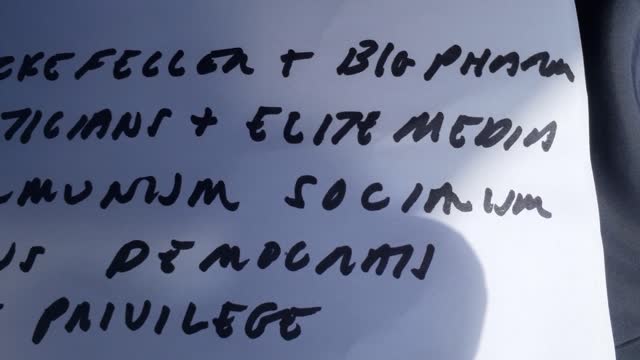 CKEFELLER + BIG PHARM
TICIANS + ELITE MEDIA
MMUNISM SOCIALISM
US DEMOCRATS
PRIVILEGE